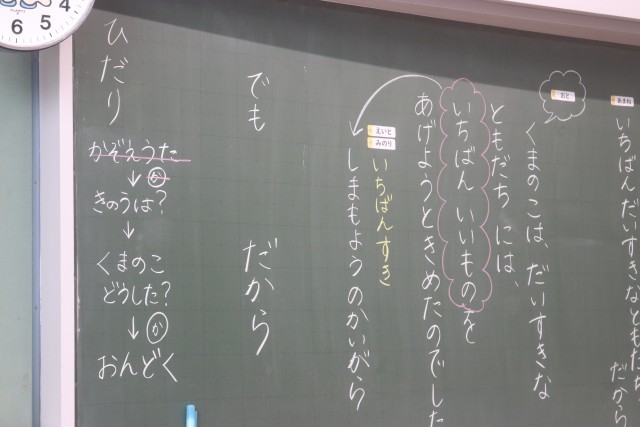 あまね
いちばんだいすきなともだち
だから
おと
くまのこは、だいすきな
ともだち には、
いちばん いいものを
あげようときめたのでした
えいと
みのり
いちばんすき
しまもようのかいがら
でも だから
ひだり
かぞえうた
↓ か
きのうは?
↓
くまのこ
どうした?
↓ か
おんどく
6 5 4